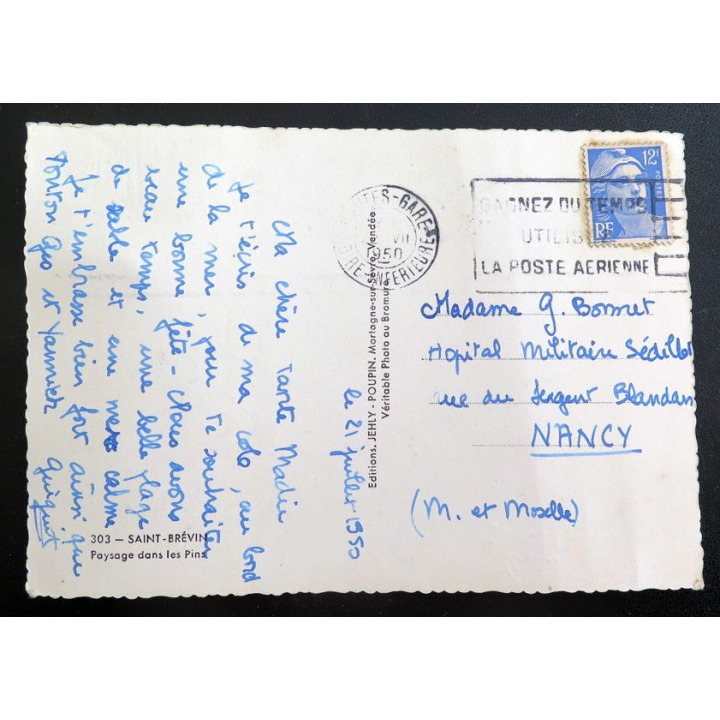 Ma chère tante Madie
Je t'écris de ma colo, au bord
de la mer, pour te souhaiter
une bonne fête - Nous avons
beau temps, une belle plage
de sable et une mer calme
Je t'embrasse bien fort ainsi que
tonton Geo et Yannick
le 21 juillet 1950
303 — SAINT-BRÉVIN
Paysage dans les Pins
Editions. JEHLY - POUPIN. Mortagne-sur-Sèvre, Vendée
Véritable Photo au Bromure
NTES-GARE
VII
1950
RE INFÉRIEURE
GAGNEZ DU TEMPS
UTILIS
LA POSTE AERIENNE
12F
POSTES
RF
Madame G. Bonnet
Hopital Militaire Sédillot
rue du Sergent Blandan
NANCY
(M. et Moselle)